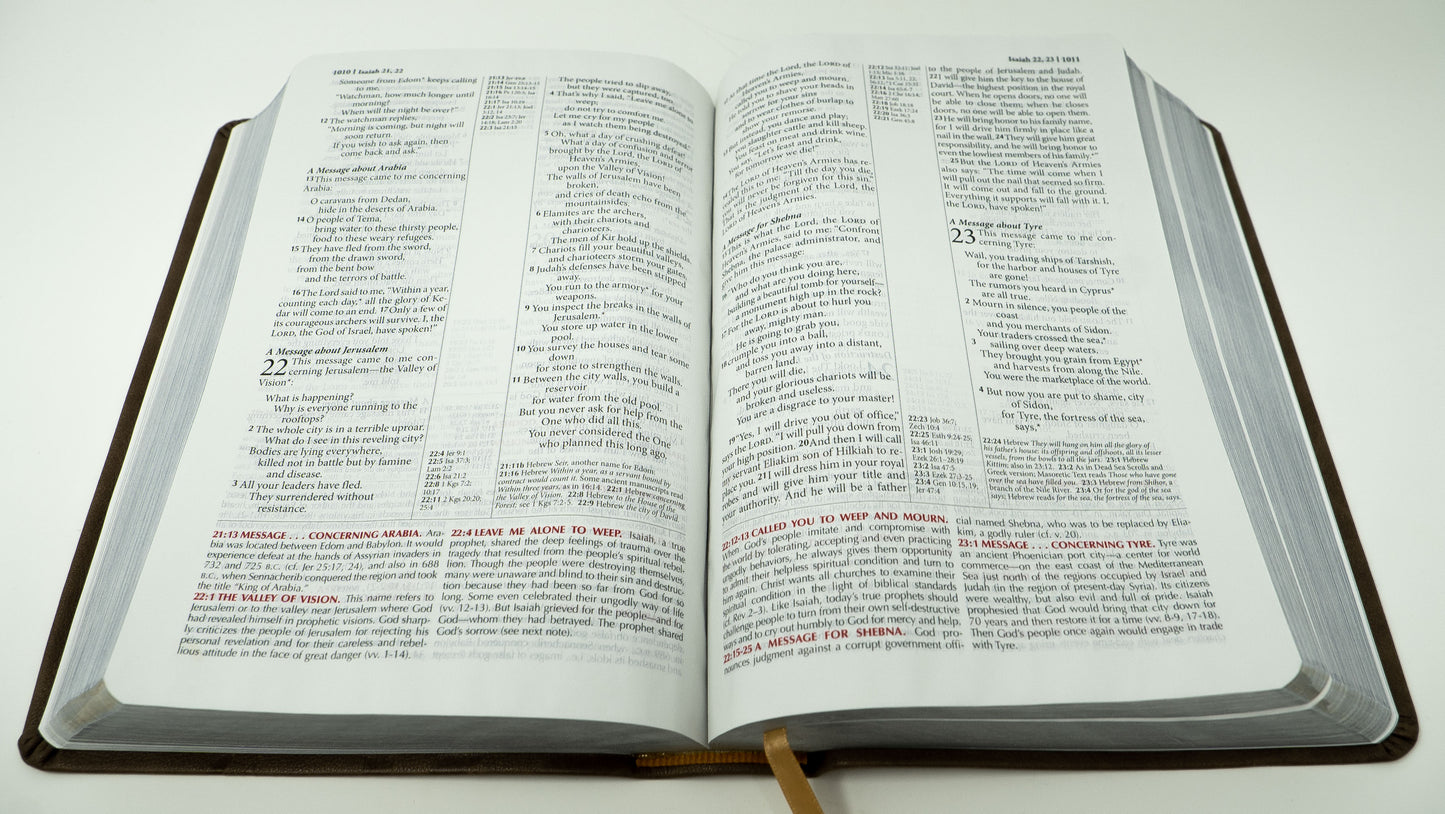 1010 | Isaiah 21, 22
Someone from Edom* keeps calling
to me,
"Watchman, how much longer until
morning?
When will the night be over?"
12 The watchman replies,
"Morning is coming, but night will
soon return.
If you wish to ask again, then
come back and ask."
A Message about Arabia
13 This message came to me concerning
Arabia:
O caravans from Dedan,
hide in the deserts of Arabia.
14 O people of Tema,
bring water to these thirsty people,
food to these weary refugees.
15 They have fled from the sword,
from the drawn sword,
from the bent bow
and the terrors of battle.
16 The Lord said to me, "Within a year,
counting each day,* all the glory of Ke-
dar will come to an end. 17 Only a few of
its courageous archers will survive. I, the
LORD, the God of Israel, have spoken!"
A Message about Jerusalem
22 This message came to me con-
cerning Jerusalem—the Valley of
Vision*:
What is happening?
Why is everyone running to the
rooftops?
2 The whole city is in a terrible uproar.
What do I see in this reveling city?
Bodies are lying everywhere,
killed not in battle but by famine
and disease.
3 All your leaders have fled.
They surrendered without
resistance.
22:4 Jer 9:1
22:5 Isa 37:3;
Lam 2:2
22:6 Isa 21:2
22:8 1 Kgs 7:2;
10:17
22:11 2 Kgs 20:20;
25:4
The people tried to slip away,
but they were captured, too.
4 That's why I said, "Leave me alone to
weep;
do not try to comfort me.
Let me cry for my people
as I watch them being destroyed."
5 Oh, what a day of crushing defeat!
What a day of confusion and terror
brought by the Lord, the LORD of
Heaven's Armies,
upon the Valley of Vision!
The walls of Jerusalem have been
broken,
and cries of death echo from the
mountainsides.
6 Elamites are the archers,
with their chariots and
charioteers.
The men of Kir hold up the shields.
7 Chariots fill your beautiful valleys,
and charioteers storm your gates.
8 Judah's defenses have been stripped
away.
You run to the armory* for your
weapons.
9 You inspect the breaks in the walls of
Jerusalem.*
You store up water in the lower
pool.
10 You survey the houses and tear some
down
for stone to strengthen the walls.
11 Between the city walls, you build a
reservoir
for water from the old pool.
But you never ask for help from the
One who did all this.
You never considered the One
who planned this long ago.
21:11b Hebrew Seir, another name for Edom.
21:16 Hebrew Within a year, as a servant bound by
contract would count it. Some ancient manuscripts read
Within three years, as in 16:14. 22:1 Hebrew concerning
the Valley of Vision. 22:8 Hebrew to the House of the
Forest; see 1 Kgs 7:2-5. 22:9 Hebrew the city of David.
21:13 MESSAGE . . . CONCERNING ARABIA. Ara-
bia was located between Edom and Babylon. It would
experience defeat at the hands of Assyrian invaders in
732 and 725 B.C. (cf. Jer 25:17, 24), and also in 688
B.C., when Sennacherib conquered the region and took
the title "King of Arabia."
22:1 THE VALLEY OF VISION. This name refers to
Jerusalem or to the valley near Jerusalem where God
had revealed himself in prophetic visions. God sharp-
ly criticizes the people of Jerusalem for rejecting his
personal revelation and for their careless and rebel-
lious attitude in the face of great danger (vv. 1-14).
22:4 LEAVE ME ALONE TO WEEP. Isaiah, a true
prophet, shared the deep feelings of trauma over the
tragedy that resulted from the people's spiritual rebel-
lion. Though the people were destroying themselves,
many were unaware and blind to their sin and destruc-
tion because they had been so far from God for so
long. Some even celebrated their ungodly way of life
(vv. 12-13). But Isaiah grieved for the people—and for
God—whom they had betrayed. The prophet shared
God's sorrow (see next note).
Isaiah 22, 23 | 1011
that time the Lord, the LORD of
Heaven's Armies,
called you to weep and mourn.
He told you to shave your heads in
sorrow for your sins
and to wear clothes of burlap to
show your remorse.
13 But instead, you dance and play;
you slaughter cattle and kill sheep.
You feast on meat and drink wine.
You say, "Let's feast and drink,
for tomorrow we die!"
14 The LORD of Heaven's Armies has re-
vealed this to me: "Till the day you die,
you will never be forgiven for this sin."
That is the judgment of the Lord, the
LORD of Heaven's Armies.
A Message for Shebna
15 This is what the Lord, the LORD of
Heaven's Armies, said to me: "Confront
Shebna, the palace administrator, and
give him this message:
16 "Who do you think you are,
and what are you doing here,
building a beautiful tomb for yourself—
a monument high up in the rock?
17 For the LORD is about to hurl you
away, mighty man.
He is going to grab you,
18 crumple you into a ball,
and toss you away into a distant,
barren land.
There you will die,
and your glorious chariots will be
broken and useless.
You are a disgrace to your master!
19 "Yes, I will drive you out of office,"
says the LORD. "I will pull you down from
your high position. 20 And then I will call
my servant Eliakim son of Hilkiah to re-
place you. 21 I will dress him in your royal
robes and will give him your title and
your authority. And he will be a father
22:23 Job 36:7;
Zech 10:4
22:25 Esth 9:24-25;
Isa 46:11
23:1 Josh 19:29;
Ezek 26:1–28:19
23:2 Isa 47:5
23:3 Ezek 27:3-25
23:4 Gen 10:15, 19,
Jer 47:4
to the people of Jerusalem and Judah.
22 I will give him the key to the house of
David—the highest position in the royal
court. When he opens doors, no one will
be able to close them; when he closes
doors, no one will be able to open them.
23 He will bring honor to his family name,
for I will drive him firmly in place like a
nail in the wall. 24 They will give him great
responsibility, and he will bring honor to
even the lowliest members of his family.*"
25 But the LORD of Heaven's Armies
also says: "The time will come when I
will pull out the nail that seemed so firm.
It will come out and fall to the ground.
Everything it supports will fall with it. I,
the LORD, have spoken!"
A Message about Tyre
23 This message came to me con-
cerning Tyre:
Wail, you trading ships of Tarshish,
for the harbor and houses of Tyre
are gone!
The rumors you heard in Cyprus*
are all true.
2 Mourn in silence, you people of the
coast
and you merchants of Sidon.
Your traders crossed the sea,*
3 sailing over deep waters.
They brought you grain from Egypt*
and harvests from along the Nile.
You were the marketplace of the world.
4 But now you are put to shame, city
of Sidon,
for Tyre, the fortress of the sea,
says,*
22:24 Hebrew They will hang on him all the glory of
his father's house: its offspring and offshoots, all its lesser
vessels, from the bowls to all the jars. 23:1 Hebrew
Kittim; also in 23:12. 23:2 As in Dead Sea Scrolls and
Greek version; Masoretic Text reads Those who have gone
over the sea have filled you. 23:3 Hebrew from Shihor, a
branch of the Nile River. 23:4 Or for the god of the sea
says; Hebrew reads for the sea, the fortress of the sea, says.
22:12-13 CALLED YOU TO WEEP AND MOURN.
When God's people imitate and compromise with
the world by tolerating, accepting and even practicing
ungodly behaviors, he always gives them opportunity
to admit their helpless spiritual condition and turn to
him again. Christ wants all churches to examine their
spiritual condition in the light of biblical standards
(cf. Rev 2–3). Like Isaiah, today's true prophets should
challenge people to turn from their own self-destructive
ways and to cry out humbly to God for mercy and help.
22:15-25 A MESSAGE FOR SHEBNA. God pro-
nounces judgment against a corrupt government offi-
cial named Shebna, who was to be replaced by Elia-
kim, a godly ruler (cf. v. 20).
23:1 MESSAGE . . . CONCERNING TYRE. Tyre was
an ancient Phoenician port city—a center for world
commerce—on the east coast of the Mediterranean
Sea just north of the regions occupied by Israel and
Judah (in the region of present-day Syria). Its citizens
were wealthy, but also evil and full of pride. Isaiah
prophesied that God would bring that city down for
70 years and then restore it for a time (vv. 8-9, 17-18).
Then God's people once again would engage in trade
with Tyre.